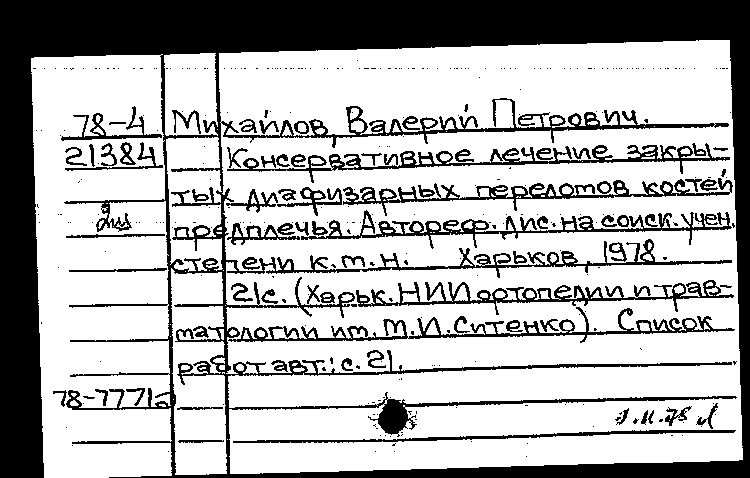 78-4 Михайлов, Валерий Петрович.
21384 Консервативное лечение закры-
тых диафизарных переломов костей
предплечья. Автореф. дис. на соиск. учен.
степени к.м.н. Харьков, 1978.
21с. (Харьк. НИИ ортопедии и трав-
матологии им. М.И. Ситенко). Список
работ авт.: с. 21.
78-7771а